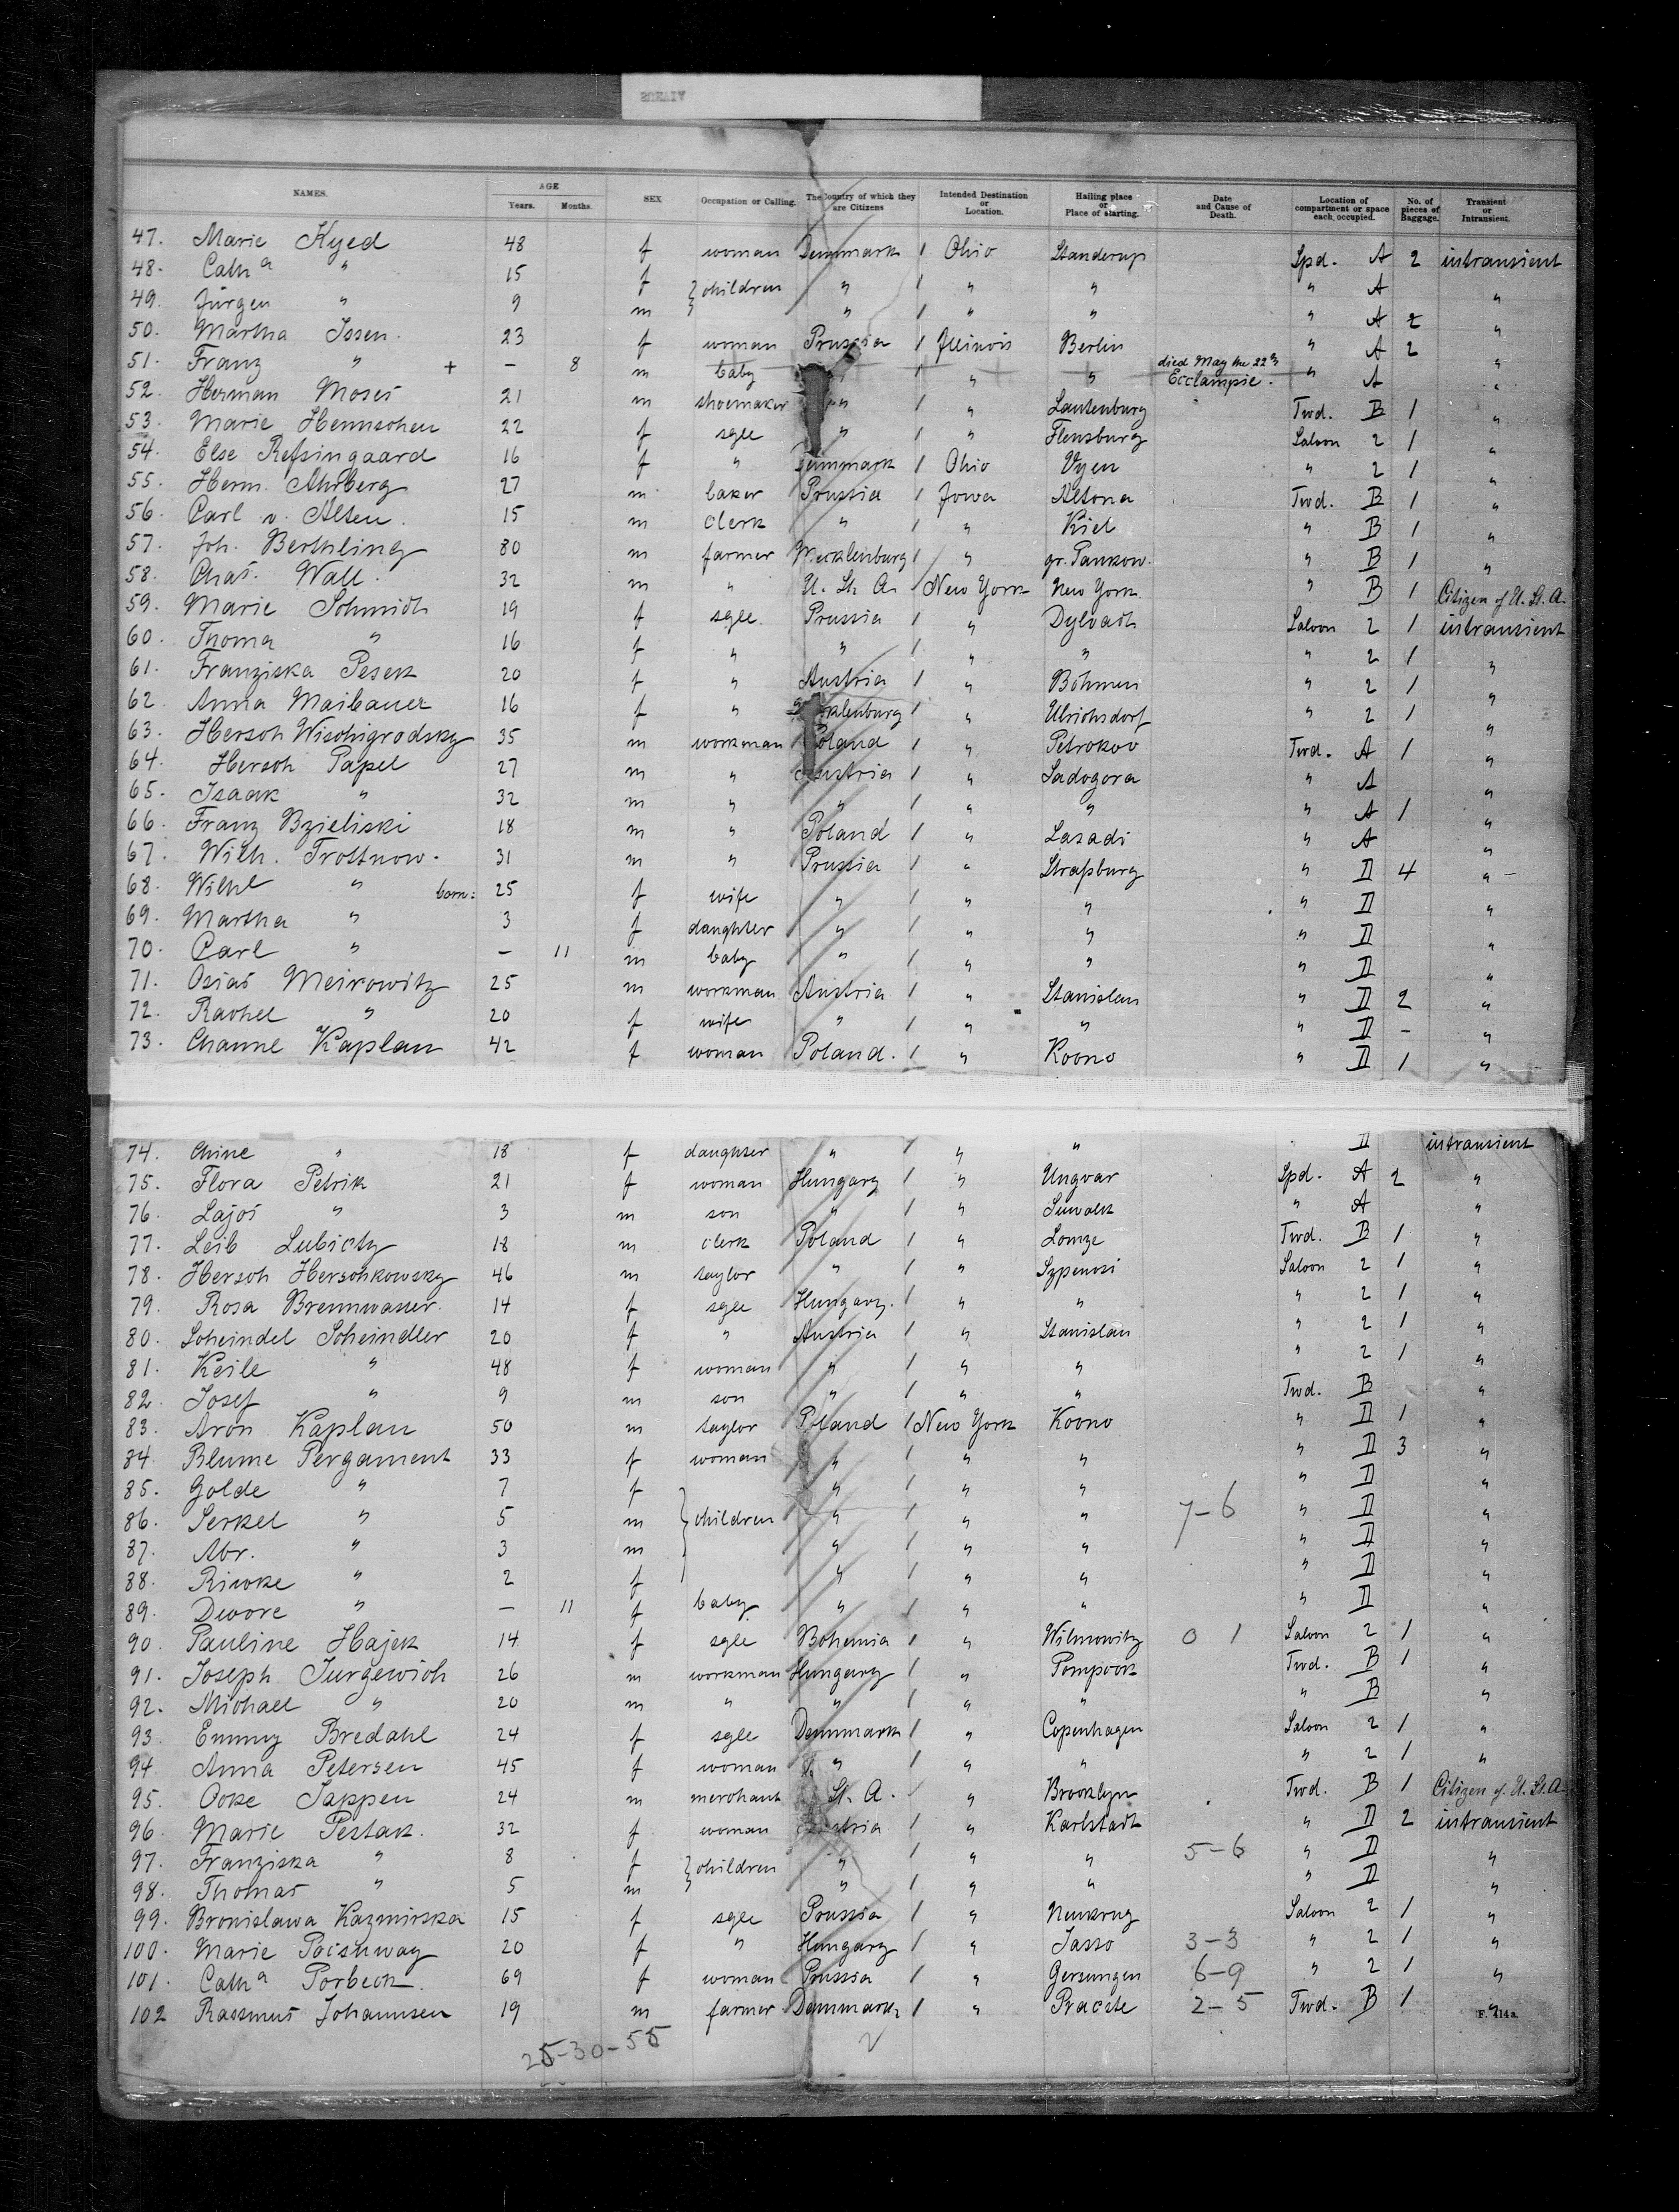 NAMES. AGE Years. Months. SEX Occupation or Calling. The Country of which they are Citizens Intended Destination or Location. Hailing place or Place of starting. Date and Cause of Death. Location of compartment or space each occupied. No. of pieces of Baggage. Transient or Intransient.
47. Marie Kyed 48 f woman Denmark 1 Ohio Standerup Spd. A 2 intransient
48. Cathª " 15 f } children " 1 " " " A "
49. Jürgen " 9 m " 1 " " " A 2 "
50. Martha Issen. 23 f woman Prussia 1 Illinois Berlin " A 2 "
51. Franz " + — 8 m baby 1 " " died May the 22th Ecclampsie. " A "
52. Herman Moses 21 m shoemaker " 1 " Lautenburg Twd. B 1 "
53. Marie Hennschen 22 f sgle " 1 " Flensburg Saloon 2 1 "
54. Else Refsingaard 16 f " Denmark 1 Ohio Vyen " 2 1 "
55. Herm. Ahrberg 27 m baker Prussia 1 Iowa Altona Twd. B 1 "
56. Carl v. Alten. 15 m clerk " 1 " Kiel " B 1 "
57. Joh. Berthling 80 m farmer Mecklenburg 1 " gr. Pankow. " B 1 "
58. Chas. Wall. 32 m " U. St. A. 1 New York New York " B 1 Citizen of U. St. A.
59. Marie Schmidt 19 f sgle. Prussia 1 " Dylvadt Saloon 2 1 intransient
60. Thoma " 16 f " " 1 " " " 2 1 "
61. Franziska Pesek 20 f " Austria 1 " Böhmen " 2 1 "
62. Anna Maibauer 16 f " klenburg 1 " Ulrichsdorf " 2 1 "
63. Hersch Wischigrodsky 35 m workman Poland 1 " Petrokov Twd. A 1 "
64. Hersch Papel 27 m " Austria 1 " Sadogora " A "
65. Isaak " 32 m " " 1 " " " A 1 "
66. Franz Bzieliski 18 m " Poland 1 " Lasadi " A "
67. Wilh. Trottnow. 31 m " Prussia 1 " Straßburg " II 4 " —
68. Wilhl " born: 25 f wife " 1 " " " II "
69. Martha " 3 f daughter " 1 " " " II
70. Carl " — 11 m baby " 1 " " " II "
71. Osias Meirowitz 25 m workman Austria 1 " Stanislau " II 2 "
72. Rachel " 20 f wife " 1 " " " II - "
73. Channe Kaplan 42 f woman Poland. 1 " Koono " II 1 "
74. Chine " 18 f daughter " 1 " " II intransient
75. Flora Petrik 21 f woman Hungary 1 " Ungvar Spd. A 2 "
76. Lajos " 3 m son " 1 " Suwalk " A "
77. Leib Lubicty 18 m clerk Poland 1 " Lomze Twd. B 1 "
78. Hersch Herschkowsky 46 m taylor " 1 " Szpenosi Saloon 2 1 "
79. Rosa Brennwasser. 14 f sgle Hungary. 1 " " " 2 1 "
80. Scheindel Scheindler 20 f " Austria 1 " Stanislau " 2 1 "
81. Keile " 48 f woman " 1 " " " 2 1 "
82. Josef " 9 m son " 1 " " Twd. B "
83. Aron Kaplan 50 m taylor Poland 1 New York Koono " II 1 "
84. Blume Pergament 33 f woman " 1 " " " II 3 "
85. Golde " 7 f " 1 " " " II "
86. Serkel " 5 m } children " 1 " " 7-6 " II "
87. Abr. " 3 m " 1 " " " II "
88. Riwke " 2 f " 1 " " " II "
89. Dwore " — 11 f baby " 1 " " " II "
90. Pauline Hajek 14 f sgle Bohemia 1 " Wilmowitz 0 1 Saloon 2 1 "
91. Joseph Jurgewich 26 m workman Hungary 1 " Pompock Twd. B 1 "
92. Michael " 20 m " " 1 " " " B "
93. Emmy Bredahl 24 f sgle Denmark 1 " Copenhagen Saloon 2 1 "
94. Anna Petersen 45 f woman " 1 " " " 2 1 "
95. Ocke Jappen 24 m merchant St. A. " Brooklyn Twd. B 1 Citizen of U. St. A.
96. Marie Pestak. 32 f woman Austria 1 " Karlstadt " II 2 intransient
97. Franziska " 8 f } children " 1 " " 5-6 " II "
98. Thomas " 5 m " 1 " " " II "
99. Bronislawa Kazmirska 15 f sgle Prussia 1 " Neukrug Saloon 2 1 "
100. Marie Pocsnway 20 f " Hungary 1 " Jasso 3-3 " 2 1 "
101. Cathª Porbeck. 69 f woman Prussia 1 " Gerungen 6-9 " 2 1 "
102 Rassmus Johannsen 19 m farmer Denmark 1 " Pracste 2-5 Twd. B 1 "
F. 414a.
25-30-55